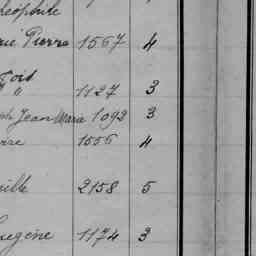 héophile
rie Pierre 1567 4
Toit
" " 1127 3
ph Jean Marie 1092 3
rre 1556 4
ille 2158 5
Eugène 1174 3